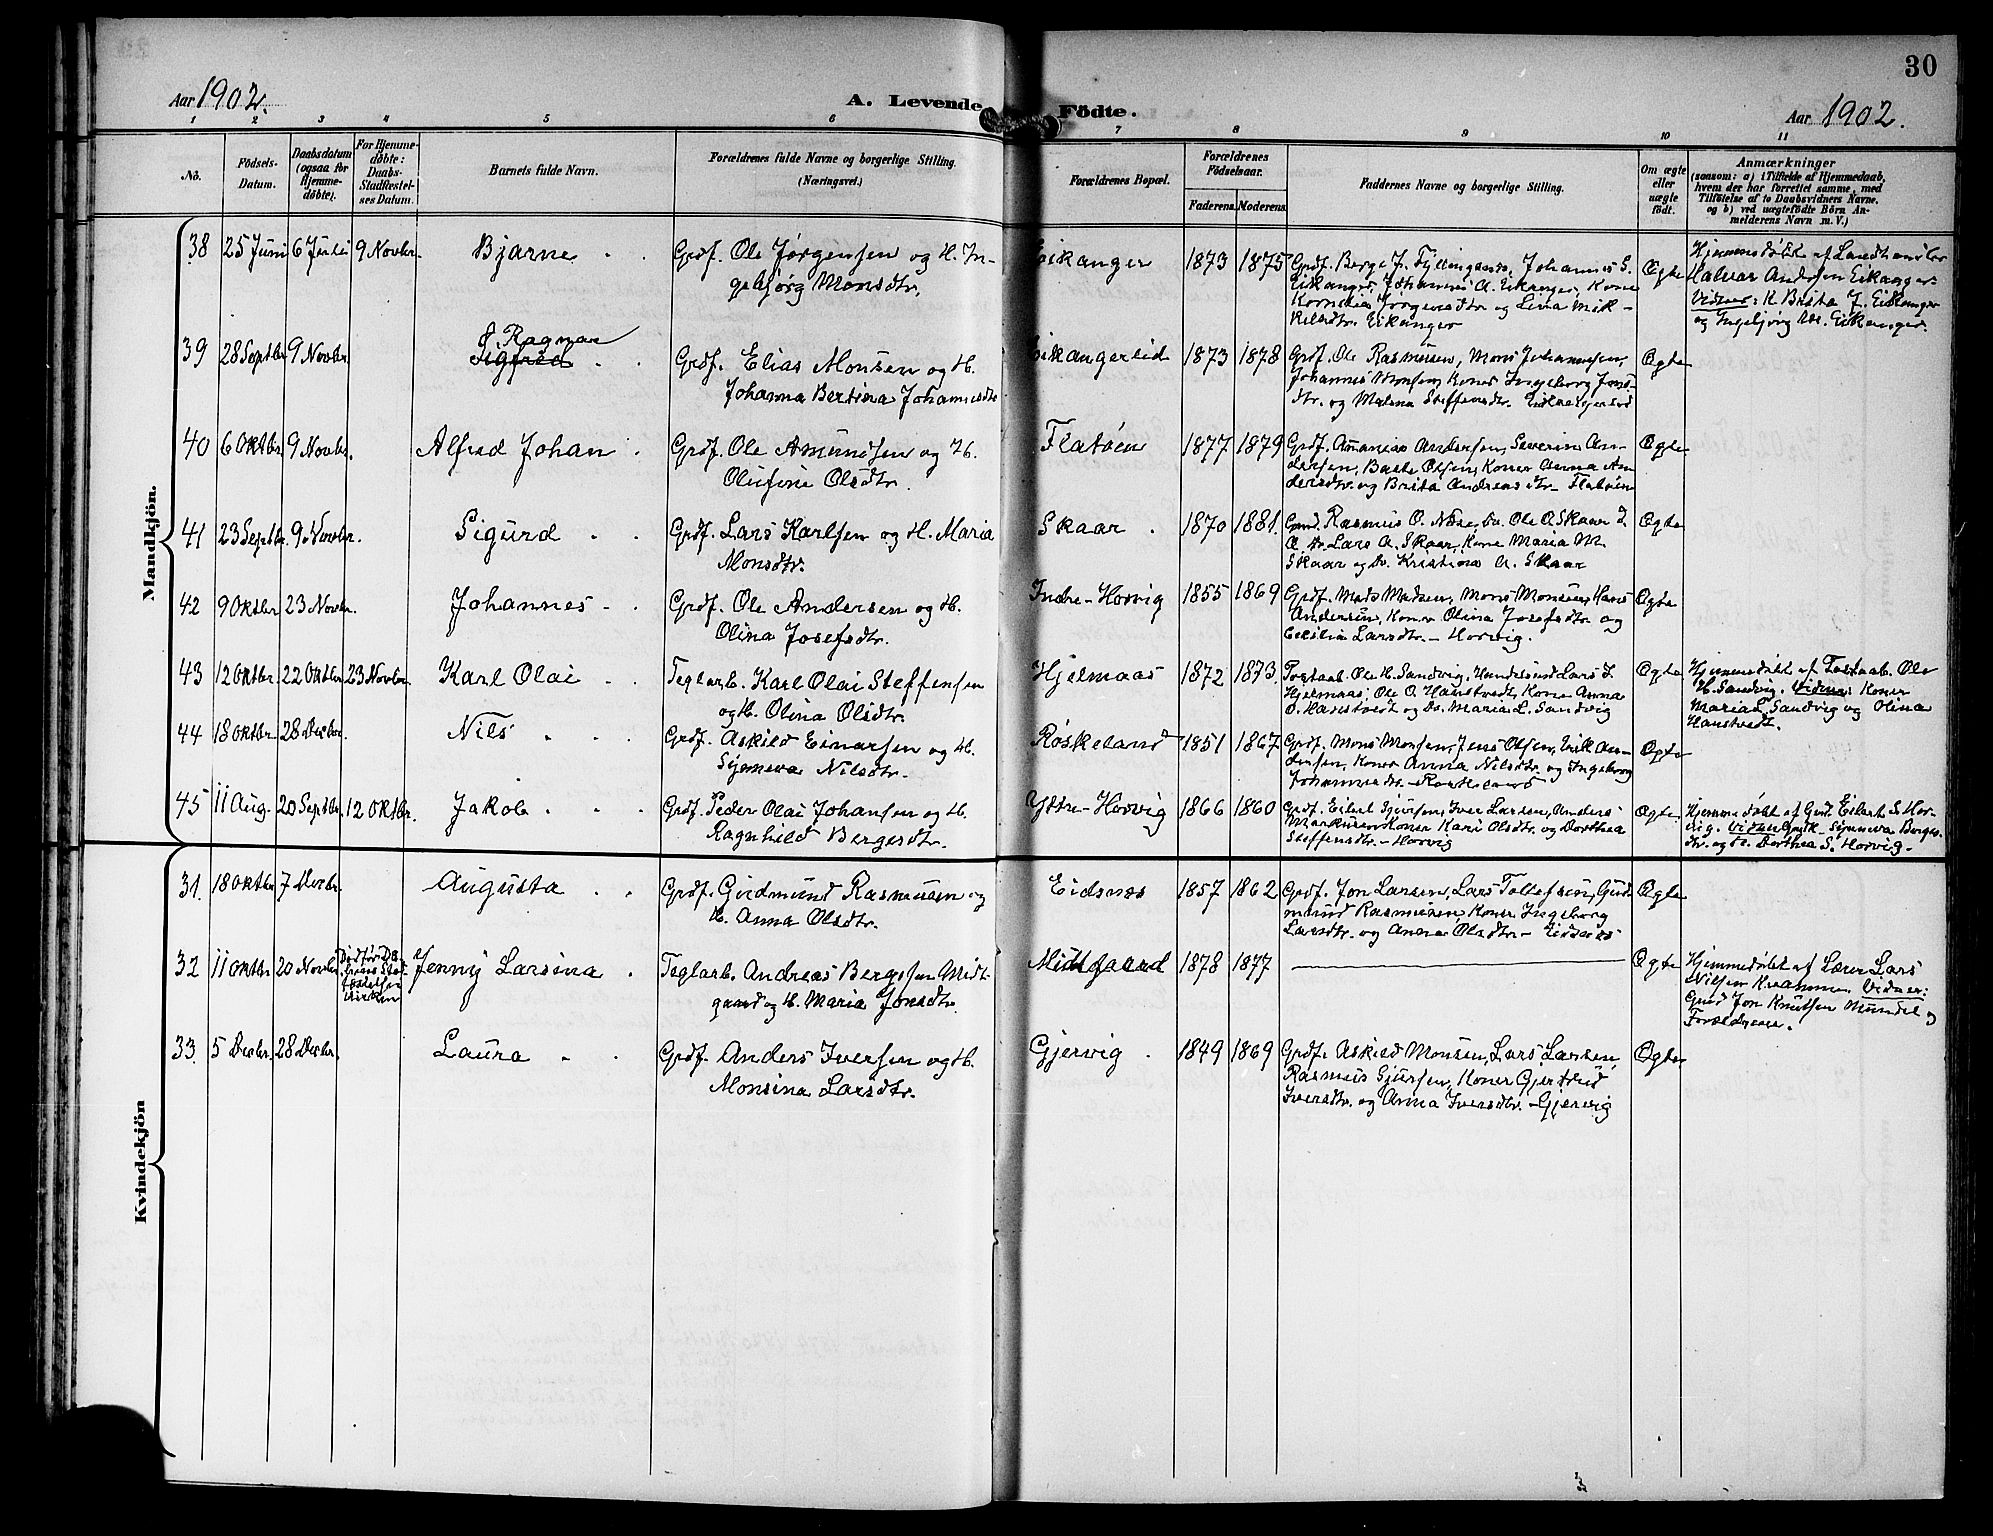 30
Aar 1902.
A. Levende Födte.
Aar 1902.
1 2 3 4 5 6 7 8 9 10 11
No.
Födsels-Datum.
Daabsdatum (ogsaa for Hjemme-døbte).
For Hjemme-døbte: Daabs-Stadfæstel-ses Datum.
Barnets fulde Navn.
Forældrenes fulde Navne og borgerlige Stilling.
(Næringsvei.)
Forældrenes Bopæl.
Forældrenes Födselsaar.
Faderens. Moderens.
Faddernes Navne og borgerlige Stilling.
Om ægte eller uægte født.
Anmærkninger
(saasom: a) i Tilfælde af Hjemmedaab,
hvem der har forrettet samme, med
Tilföielse af to Daabsvidners Navne,
og b) ved uægtefödte Börn An-
melderens Navn m. V.)
Mandkjön.
38 25 Juni 6 Juli 9 Novbr. Bjarne Grdf. Ole Jørgensen og H. In-
gebjørg Monsdtr.
Eikanger 1873 1875 Grdf. Berge J. Fyllingsnes, Johannes S.
Eikanger, Johannes A. Eikanger, Kone
Kornelia Jørgensdtr og Lina Mik-
kelsdtr. Eikanger
Ægte
Hjemmedøbt af Landhandler
Halvar Andersen Eikanger.
Vidner: K Brita J. Eikanger
og Ingebjørg M. Eikanger.
39 28 Septbr 9 Novbr. Ragnar
Sigfred
Grdf. Elias Monsen og H.
Johanna Bertina Johannesdtr
Eikangerlid 1873 1878 Grdf. Ole Rasmussen, Mons Johannesen,
Johannes Monsen, Koner Ingeborg Jons-
dtr. og Malena Steffensdtr. Eikangerlid
Ægte
40 6 Oktbr 9 Novbr. Alfred Johan Grdf. Ole Amundsen og H.
Olufine Olsdtr.
Flatøen 1877 1879 Grdf. Ananias Andersen, Severin An-
dersen, Baste Olsen, Koner Anna An-
dersdtr. og Brita Andreasdtr - Flatøen
Ægte
41 23 Septbr. 9 Novbr. Sigurd Grdf. Lars Karlsen og H. Maria
Monsdtr.
Skaar 1870 1881. Gmd. Rasmus O. Næse, Ole O. Skaar
Lars A. Skaar, Kone Maria M.
Skaar og Kristina A. Skaar
Ægte
42 9 Oktbr 23 Novbr. Johannes Grdf. Ole Andersen og H.
Olina Josefsdtr.
Indre-Horvig 1855 1869 Grdf. Mads Madsen, Mons Monsen, Hans
Andersen, Koner Olina Josefsdtr og
Cecilia Larsdtr. - Horvig.
Ægte
43 12 Oktbr. 22 Oktbr 23 Novbr. Karl Olai Teglarb. Karl Olai Steffensen
og H. Olina Olsdtr.
Hjelmaas 1872 1873. Postaab. Ole H. Sandvig, Lars L
Hjelmaas, Ole O. Hanstvedt, Kone Anna
O. Hanstvedt og Maria L. Sandvig
Ægte
Hjemmedøbt af Postaab. Ole
H. Sandvig. Vidner: Koner
Maria L. Sandvig og Olina
Hanstvedt.
44 18 Oktbr 28 Decbr. Nils Grdf. Askild Einarsen og H.
Synneva Nilsdtr.
Røskeland 1851 1867 Grdf. Mons Monsen, Jens Olsen, Erik An-
dersen, Koner Anna Nilsdtr. og Ingeborg
Johannesdtr. - Røskeland
Ægte
45 11 Aug. 20 Septbr. 12 Oktbr. Jakob Grdf. Peder Olai Johansen og H.
Ragnhild Bergesdtr.
Yttre-Horvig 1866 1860 Grdf. Eilert Sjursen, Iver Larsen, Anders
Markusen, Koner Kari Olsdtr. og Dorthea
Steffensdtr. - Horvig
Ægte
Hjemmedøbt af Grd. Eilert S. Hor-
vig. Vidner: Synneva Berges-
dtr. og Dorthea S. Horvig.
Kvindekjön
31. 18 Oktbr 7 Decbr. Augusta Grdf. Gudmund Rasmussen og
H. Anna Olsdtr.
Eidsnes 1857 1862 Grdf. Jon Larsen, Lars Tollefsen, Gud-
mund Rasmussen, Koner Ingeborg
Larsdtr. og Anna Olsdtr - Eidsnes
Ægte
32 11 Oktbr 20 Novbr. Død før
Kirken
Jenny Larsina Teglarb. Andreas Bergesen Midt-
gaard og H. Maria Jonsdtr.
Midtgaard 1878 1877 Ægte
Hjemmedøbt af Lærer Lars
Nilsen Kvamme. Vidner:
Grd Jon Knutsen Mundal og
Forældrene.
33. 5 Decbr. 28 Decbr. Laura Grdf. Anders Iversen og H.
Monsina Larsdtr.
Gjervig 1849 1869 Grdf. Askild Monsen, Lars Larsen,
Rasmus Sjursen, Koner Gjertrud
Iversdtr. og Anna Iversdtr. - Gjervig
Ægte
3